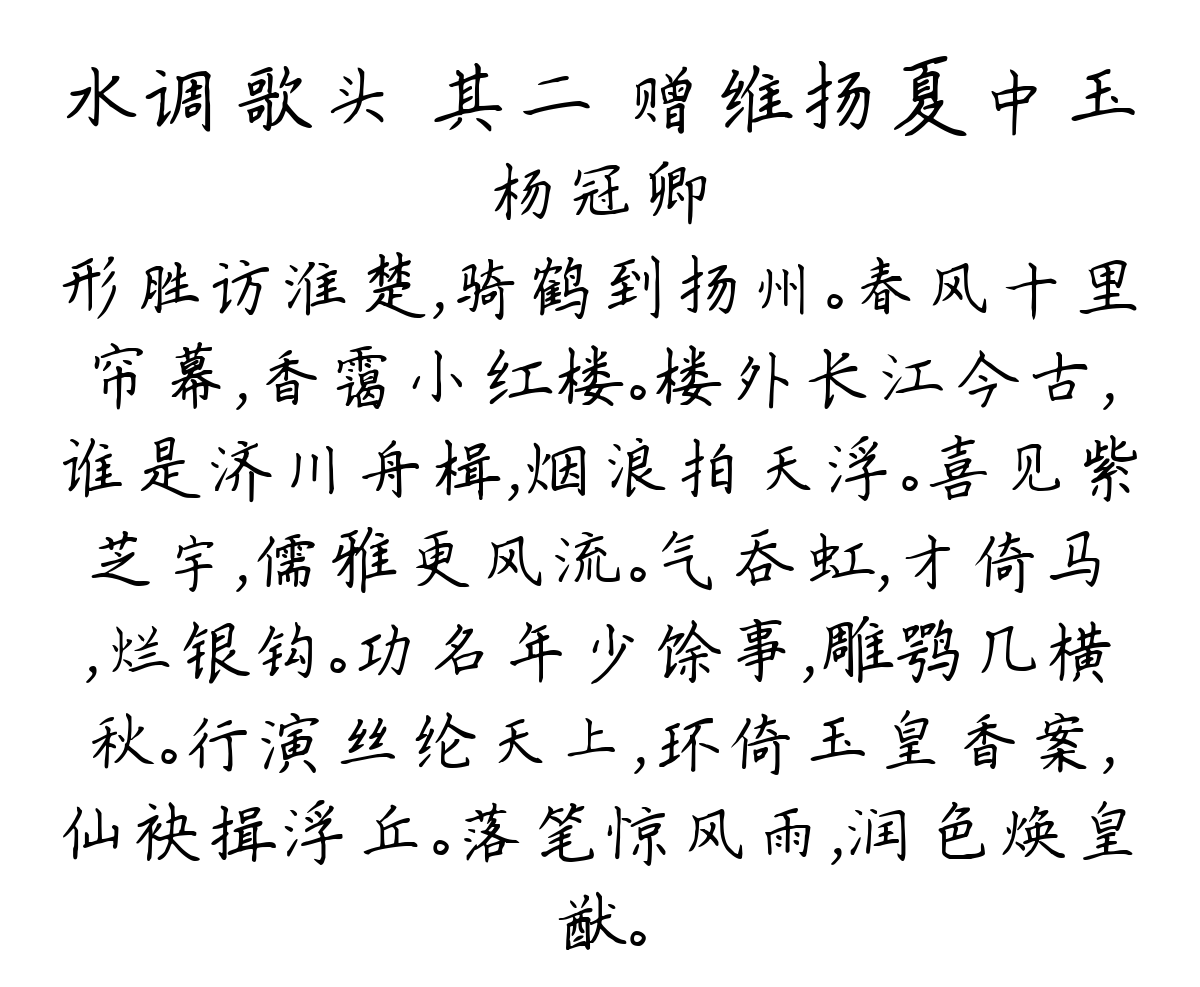 水调歌头 其二 赠维扬夏中玉
杨冠卿
形胜访淮楚,骑鹤到扬州。春风十里
帘幕,香霭小红楼。楼外长江今古,
谁是济川舟楫,烟浪拍天浮。喜见紫
芝宇,儒雅更风流。气吞虹,才倚马
,烂银钩。功名年少馀事,雕鹗几横
秋。行演丝纶天上,环倚玉皇香案,
仙袂揖浮丘。落笔惊风雨,润色焕皇
猷。